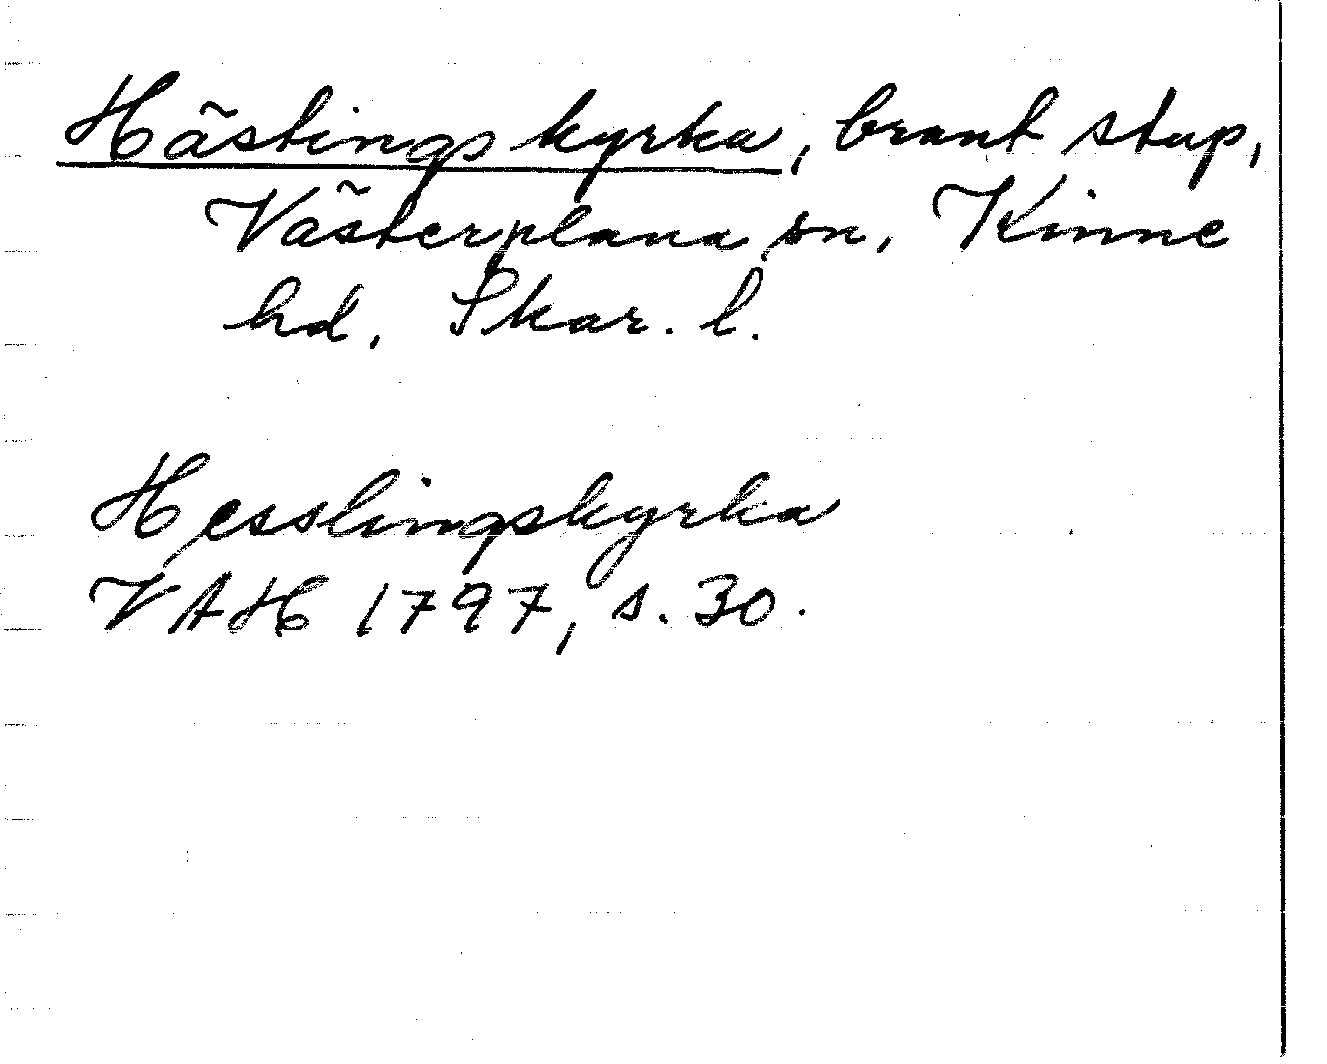 Hästings kyrka, brant stup,
Västerplana sn, Kinne
hd, Skar. l.
Hesslingskyrka
VAH 1797, s. 30.